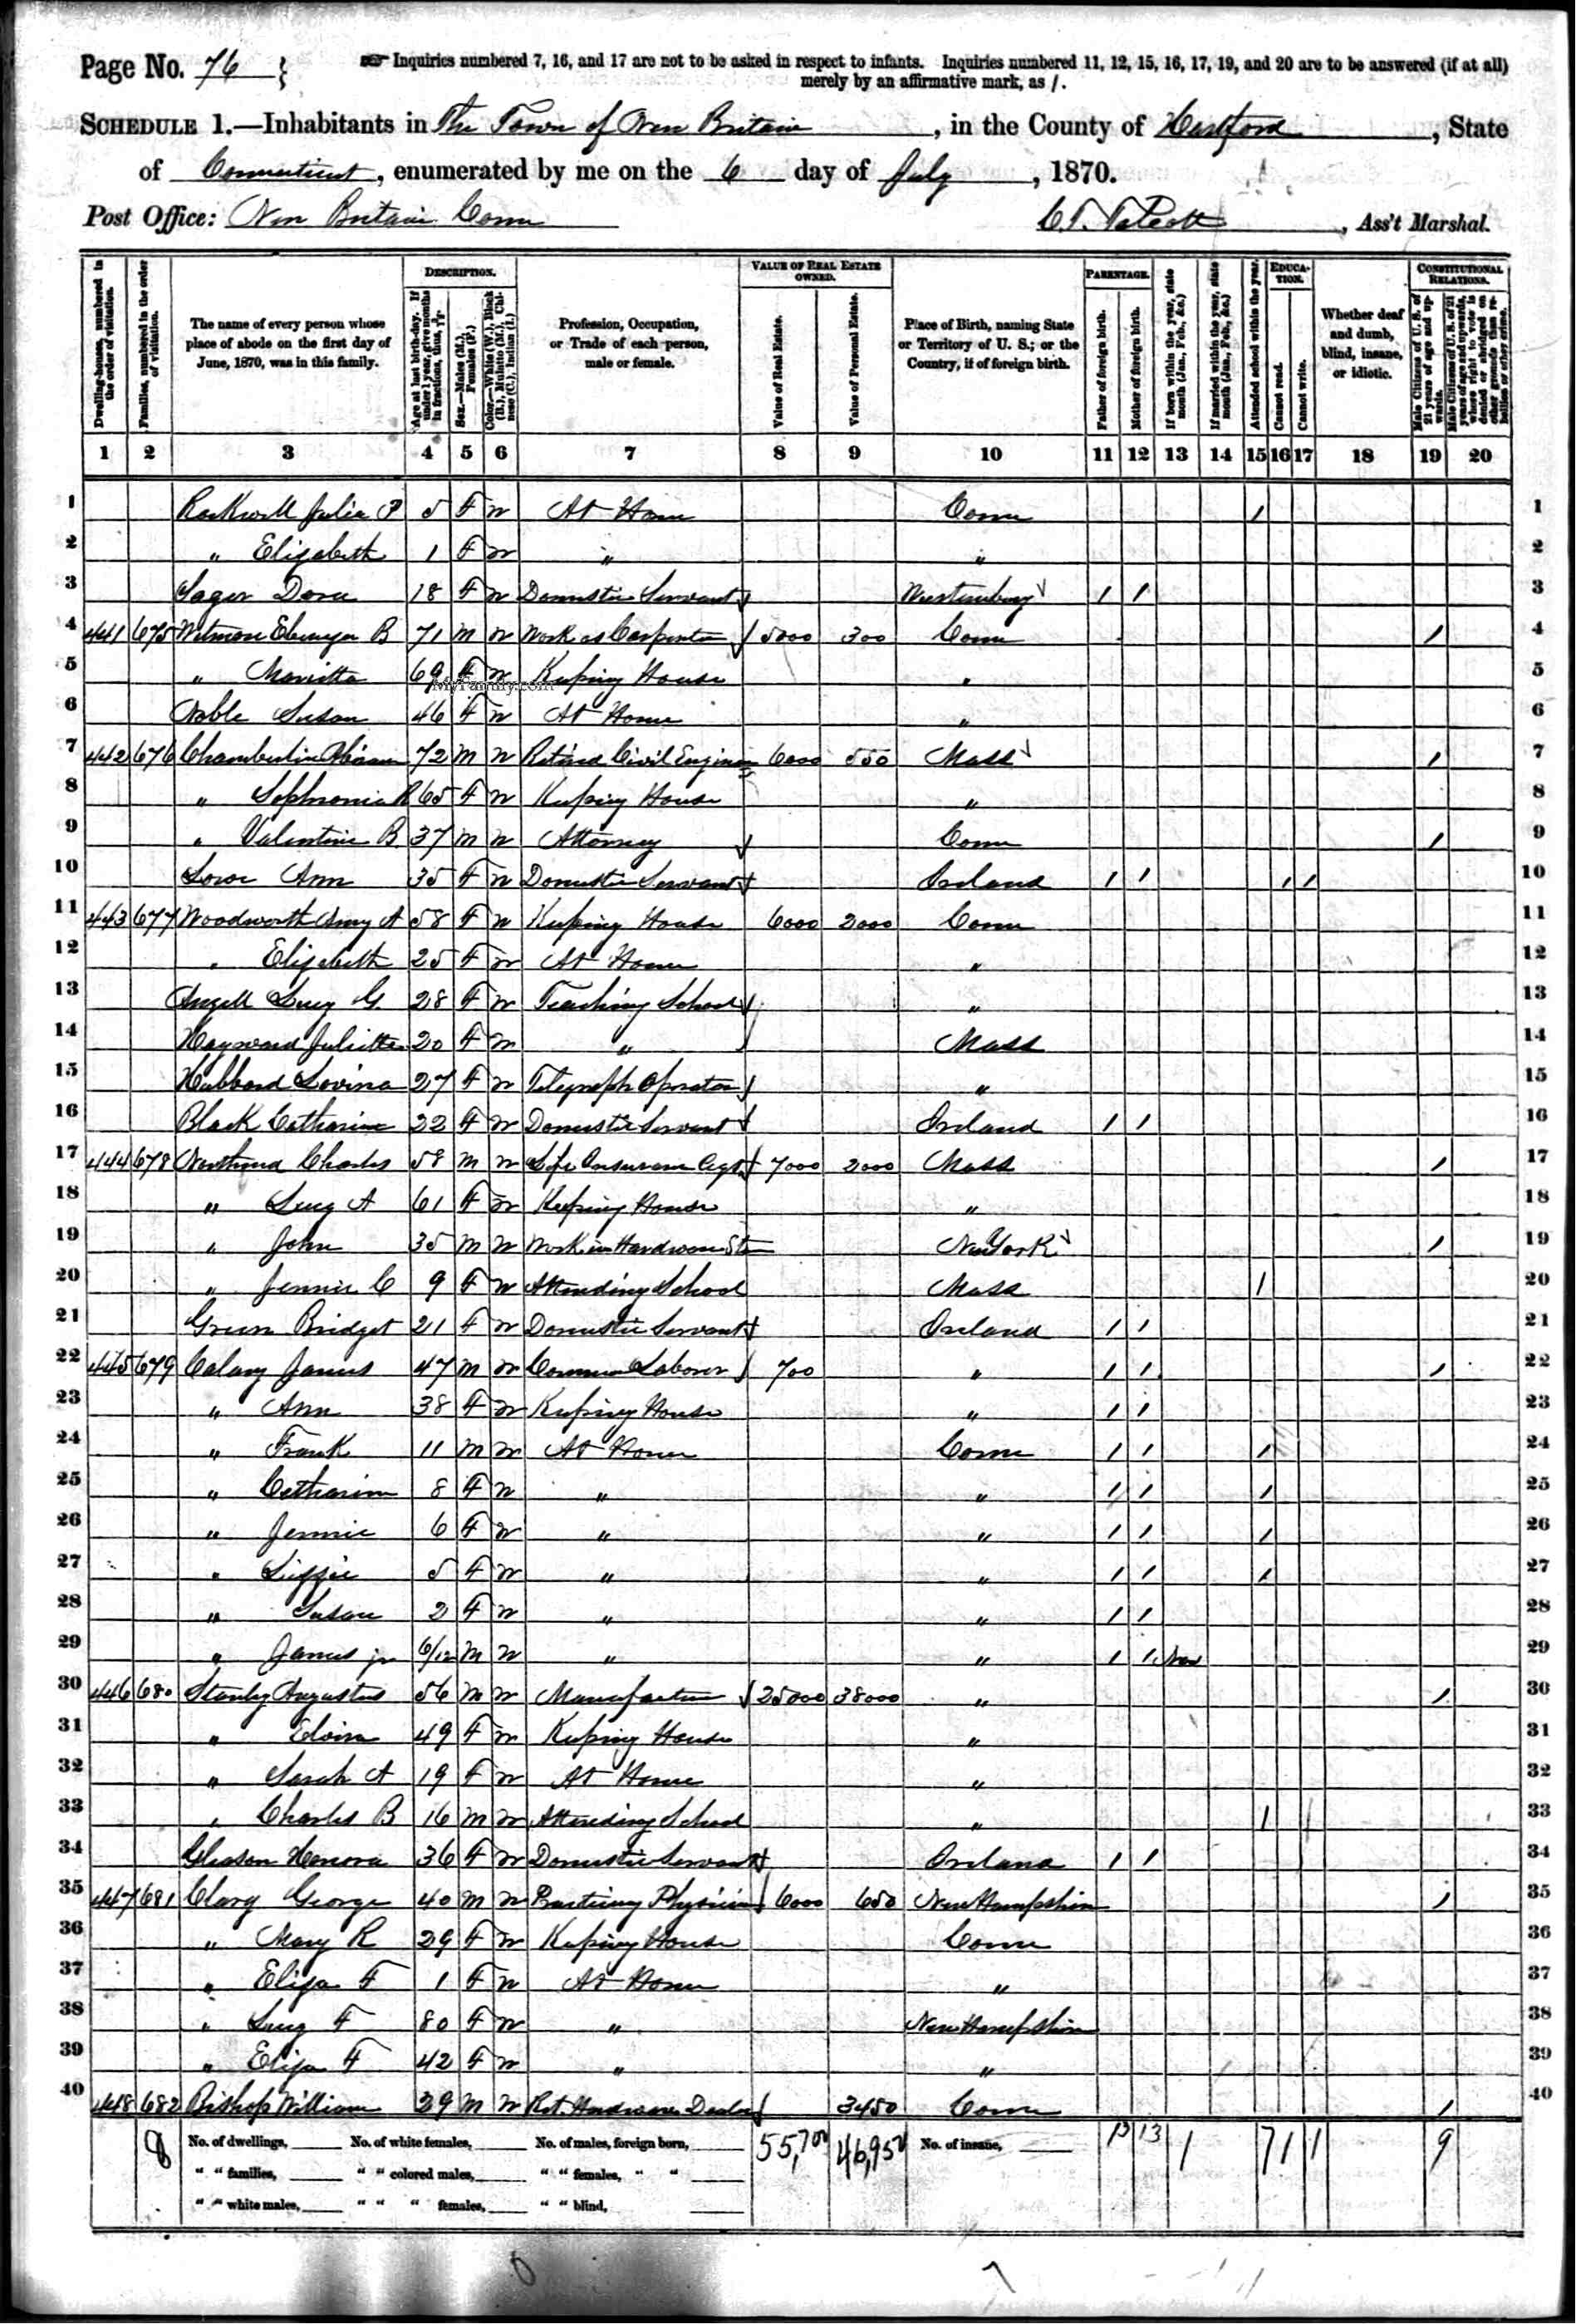 Page No. 76
☞ Inquiries numbered 7, 16, and 17 are not to be asked in respect to infants. Inquiries numbered 11, 12, 15, 16, 17, 19, and 20 are to be answered (if at all)
merely by an affirmative mark, as /.
SCHEDULE 1.—Inhabitants in The Town of New Britain, in the County of Hartford, State
of Connecticut, enumerated by me on the 6 day of July, 1870.
Post Office: New Britain Conn C. T. Talcott, Ass't Marshal.
Dwelling-houses, numbered in the order of visitation.
Families, numbered in the order of visitation.
The name of every person whose place of abode on the first day of June, 1870, was in this family.
DESCRIPTION.
Age at last birth-day. If under 1 year, give months in fractions, thus, 3/12.
Sex.—Males (M.), Females (F.)
Color.—White (W.), Black (B.), Mulatto (M.), Chinese (C.), Indian (I.)
Profession, Occupation, or Trade of each person, male or female.
VALUE OF REAL ESTATE OWNED.
Value of Real Estate.
Value of Personal Estate.
Place of Birth, naming State or Territory of U. S.; or the Country, if of foreign birth.
PARENTAGE.
Father of foreign birth.
Mother of foreign birth.
If born within the year, state month (Jan., Feb., &c.)
If married within the year, state month (Jan., Feb., &c.)
Attended school within the year.
EDUCATION.
Cannot read.
Cannot write.
Whether deaf and dumb, blind, insane, or idiotic.
CONSTITUTIONAL RELATIONS.
Male Citizens of U. S. of 21 years of age and upwards.
Male Citizens of U. S. of 21 years of age and upwards, whose right to vote is denied or abridged on other grounds than rebellion or other crime.
1 2 3 4 5 6 7 8 9 10 11 12 13 14 15 16 17 18 19 20
1 Rockwell Julia P 5 F W At Home Conn / 1
2 " Elizabeth 1 F W " " 2
3 Sager Dora 18 F W Domestic Servant Wurtemburg / / 3
4 441 675 Wetmore Ebenezer B 71 M W Work as Carpenter 5000 300 Conn / 4
5 " Marietta 69 F W Keeping House " 5
MyFamily.com
6 Noble Susan 46 F W At Home " 6
7 442 676 Chamberlin Hiram 72 M W Retired Civil Engineer 6000 550 Mass / 7
8 " Sophronia R 65 F W Keeping House " 8
9 " Valentine B 37 M W Attorney Conn / 9
10 Ann 35 F W Domestic Servant Ireland / / / / 10
11 443 677 Woodworth Amy A 58 F W Keeping House 6000 2000 Conn 11
12 " Elizabeth 25 F W At Home " 12
13 Angell Lucy G. 28 F W Teaching School " 13
14 Hayward Juliette 20 F W " Mass 14
15 Hubbard Lovina 27 F W Telegraph Operator " 15
16 Black Catharine 22 F W Domestic Servant Ireland / / 16
17 444 678 Northend Charles 58 M W Life Insurance Agt. 7000 2000 Mass / 17
18 " Lucy A 61 F W Keeping House " 18
19 " John 35 M W Work in Hardware Store New York / 19
20 " Jennie C 9 F W Attending School Mass / 20
21 Green Bridget 21 F W Domestic Servant Ireland / / 21
22 445 679 James 47 M W Common Laborer 700 " / / / 22
23 " Ann 38 F W Keeping House " / / 23
24 " Frank 11 M W At Home Conn / / / 24
25 " Catharine 8 F W " " / / / 25
26 " Jennie 6 F W " " / / / 26
27 " Lizzie 5 F W " " / / / 27
28 " Susan 2 F W " " / / 28
29 " James jr 6/12 M W " " / / 29
30 446 680 Stanley Augustus 56 M W Manufacturer 25000 38000 " / 30
31 " Elvira 49 F W Keeping House " 31
32 " Sarah A 19 F W At Home " 32
33 " Charles B 16 M W Attending School " / 33
34 Gleason Honora 36 F W Domestic Servant Ireland / / 34
35 447 681 Clary George 40 M W Practicing Physician 6000 650 New Hampshire / 35
36 " Mary R 29 F W Keeping House Conn 36
37 " Eliza F 1 F W At Home " 37
38 " Lucy F 80 F W " New Hampshire 38
39 " Eliza F 42 F W " " 39
40 448 682 Bishop William 39 M W Ret. Hardware Dealer 3450 Conn / 40
8 No. of dwellings, No. of white females, No. of males, foreign born, 55,700 46,950 No. of insane, 13 13 1 7 1 1 9
" " families, " " colored males, " " females, " "
" " white males, " " " females, " " blind,